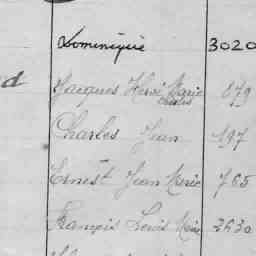 Dominique 3020
d Jacques Hervé Marie Charles 879
Charles Jean 197
Ernest Jean Marie 765
François Louis Marie 2630